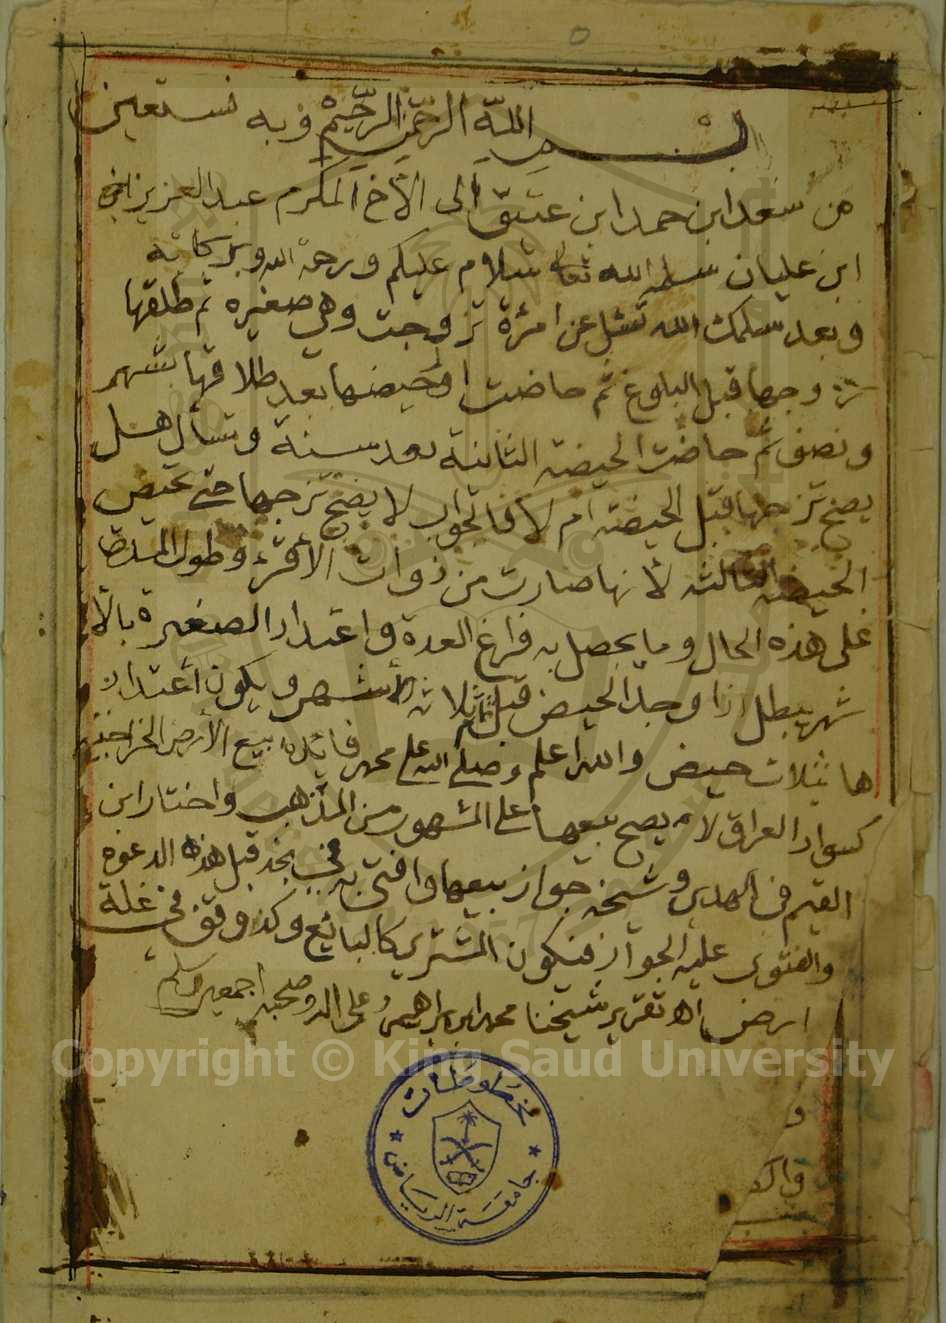 بسم الله الرحمن الرحيم وبه نستعين
من سعد ابن حمد ابن عتيق الى الأخ المكرم عبد العزيز
ابن عليان سلمه الله تعالى سلام عليكم ورحمة الله وبركاته
وبعد سلمك الله تسئل عن امرئة تزوجت وهي صغيره ثم طلقها
زوجها قبل البلوغ ثم حاضت اول حيضها بعد طلاقها بشهر
ونصف ثم حاضت الحيضه الثانية بعد سنة وتسأل هل
يصح تزوجها قبل الحيضه ام لا فالجواب لا يصح تزوجها حتى تحيض
الحيضه الثالثه لأنها صارت من ذوات الأقرء وطول المدة
على هذه الحال وما يحصل به فراغ العدة واعتداد الصغيرة بالأ
شهر يبطل اذا وجد الحيض قبل ثلاثة أشهر ويكون أعتداد
ها بثلاث حيض والله اعلم وصلى الله على محمد فائدة بيع الأرض الخراجيه
كسواد العراق لا يصح بيعها على المشهور من المذهب واختار ابن
القيم في الهدي وشيخه جواز بيعها وافتى به في نجد قبل هذه الدعوه
والفتوى عليه الجواز فيكون المشتري كالبائع وكذا وقف في غلة
ارض اه تقرير شيخنا محمد ابن ابراهيم وعلى اله وصحبه اجمعين وسلم
Copyright © King Saud University
مخطوطات
جامعة الرياض
و